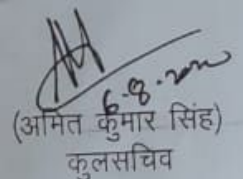 6-8-2020
(अमित कुमार सिंह)
कुलसचिव